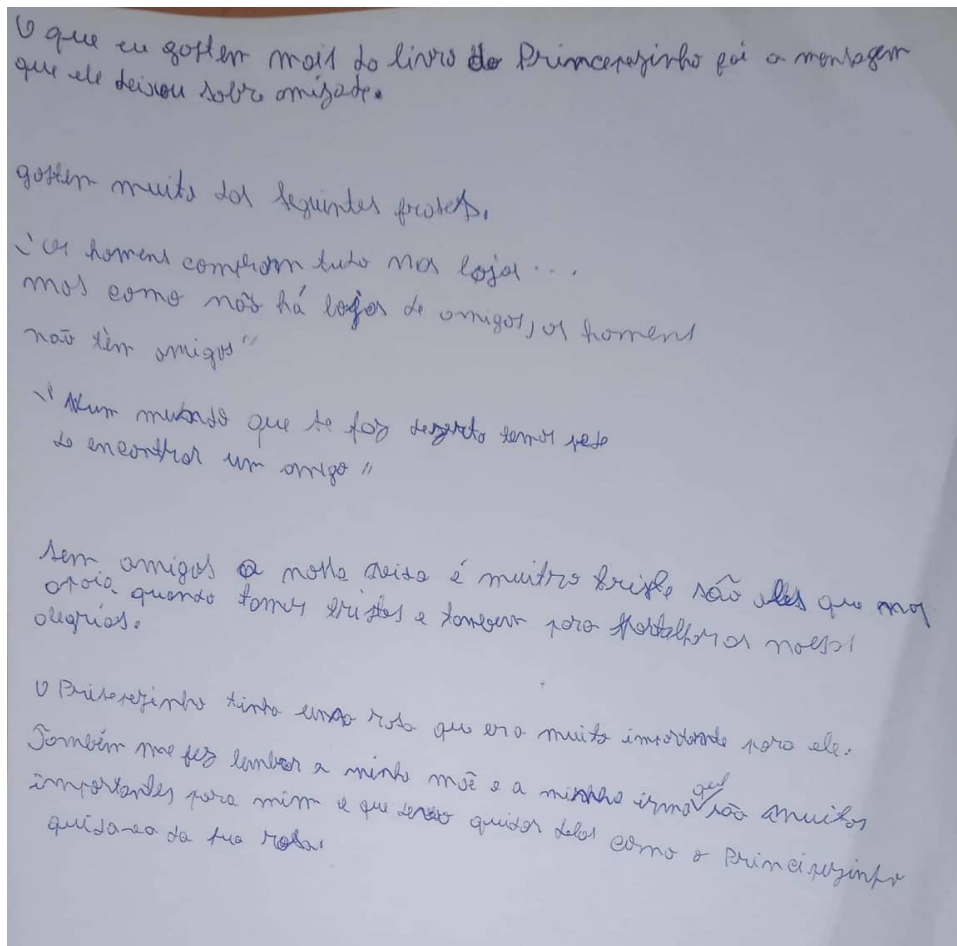 O que eu gostem mais do livro do Princepezinho foi a mensagem
que ele deixou sobre amizade.
gostem muito das seguintes frases.
"Os homens compram tudo nas lojas...
mas como não há lojas de amigos, os homens
não têm amigos"
"Num mundo que se faz deserto temos sede
de encontrar um amigo"
sem amigos a nossa vida é muitro triste são eles que nos
apoia quando tamos tristes e também para as nossas
alegrias.
O tinha uma rosa que era muito importante para ele.
Também me fez lembrar a minha mãe e a minha irmã que são muitos
importantes para mim e que devo quidar delas como o Principezinho
quidava da sua rosa.